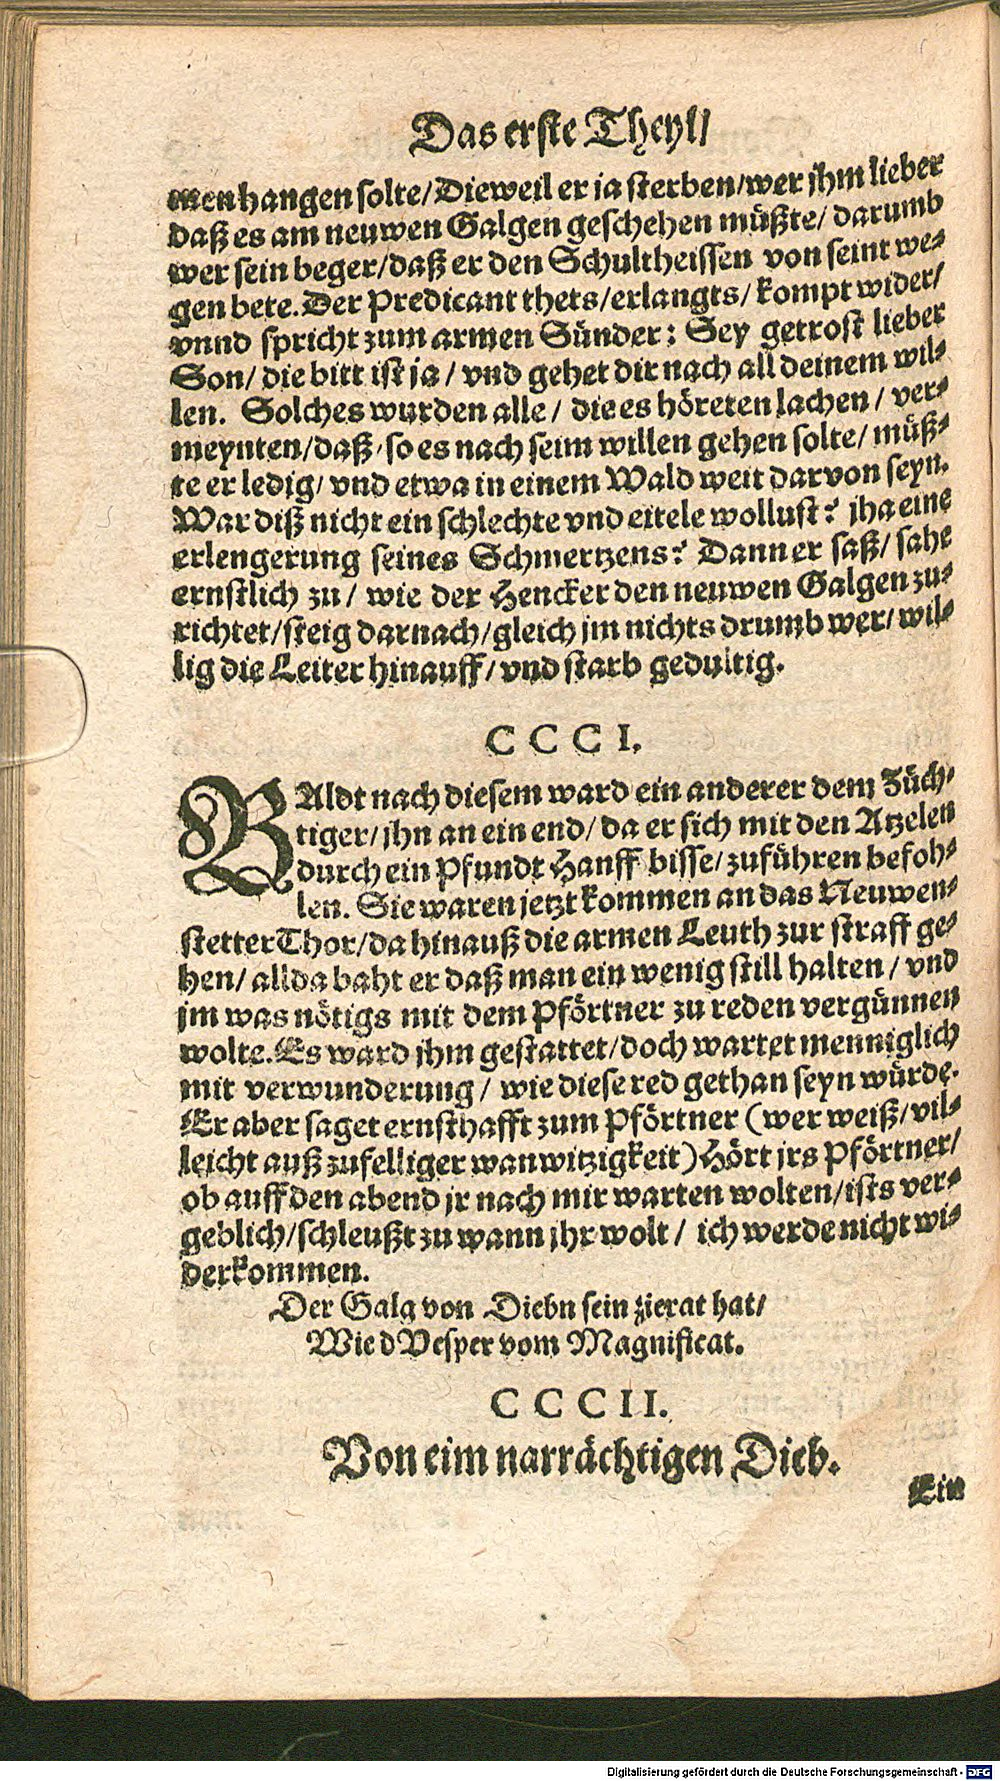 Das erste Theyl/
men hangen solte/Dieweil er ja sterben/wer jhm lieber
daß es am neuwen Galgen geschehen müßte/ darumb
wer sein beger/daß er den Schultheissen von seint we⸗
gen bete. Der Predicant thets/erlangts/ kompt wider/
vnnd spricht zum armen Sünder: Sey getrost lieber
Son/ die bitt ist ja/ vnd gehet dir nach all deinem wil⸗
len. Solches wurden alle/ die es höreten lachen/ ver⸗
meynten/daß so es nach seim willen gehen solte/ müß⸗
te er ledig/ vnd etwa in einem Wald weit darvon seyn.
War diß nicht ein schlechte vnd eitele wollust? jha eine
erlengerung seines Schmertzens? Dann er saß/ sahe
ernstlich zu/ wie der Hencker den neuwen Galgen zu⸗
richtet/steig darnach/gleich jm nichts drumb wer/ wil⸗
lig die Leiter hinauff/ vnd starb gedultig.
CCCI.
BAldt nach diesem ward ein anderer dem Züch⸗
tiger/jhn an ein end/ da er sich mit den Atzelen
durch ein Pfundt Hanff bisse/zuführen befoh⸗
len. Sie waren jetzt kommen an das Neuwen⸗
stetter Thor/da hinauß die armen Leuth zur straff ge⸗
hen/ allda baht er daß man ein wenig still halten/ vnd
jm was nötigs mit dem Pförtner zu reden vergünnen
wolte. Es ward jhm gestattet/doch wartet menniglich
mit verwunderung/ wie diese red gethan seyn würde.
Er aber saget ernsthafft zum Pförtner (wer weiß/vil⸗
leicht auß zufelliger wanwitzigkeit) Hört jrs Pförtner/
ob auff den abend jr nach mir warten wolten/ists ver⸗
geblich/schleußt zu wann jhr wolt/ ich werde nicht wi⸗
derkommen.
Der Galg von Diebn sein zierat hat/
Wie d Vesper vom Magnificat.
CCCII.
Von eim narrächtigen Dieb.
Ein
Digitalisierung gefördert durch die Deutsche Forschungsgemeinschaft - DFG